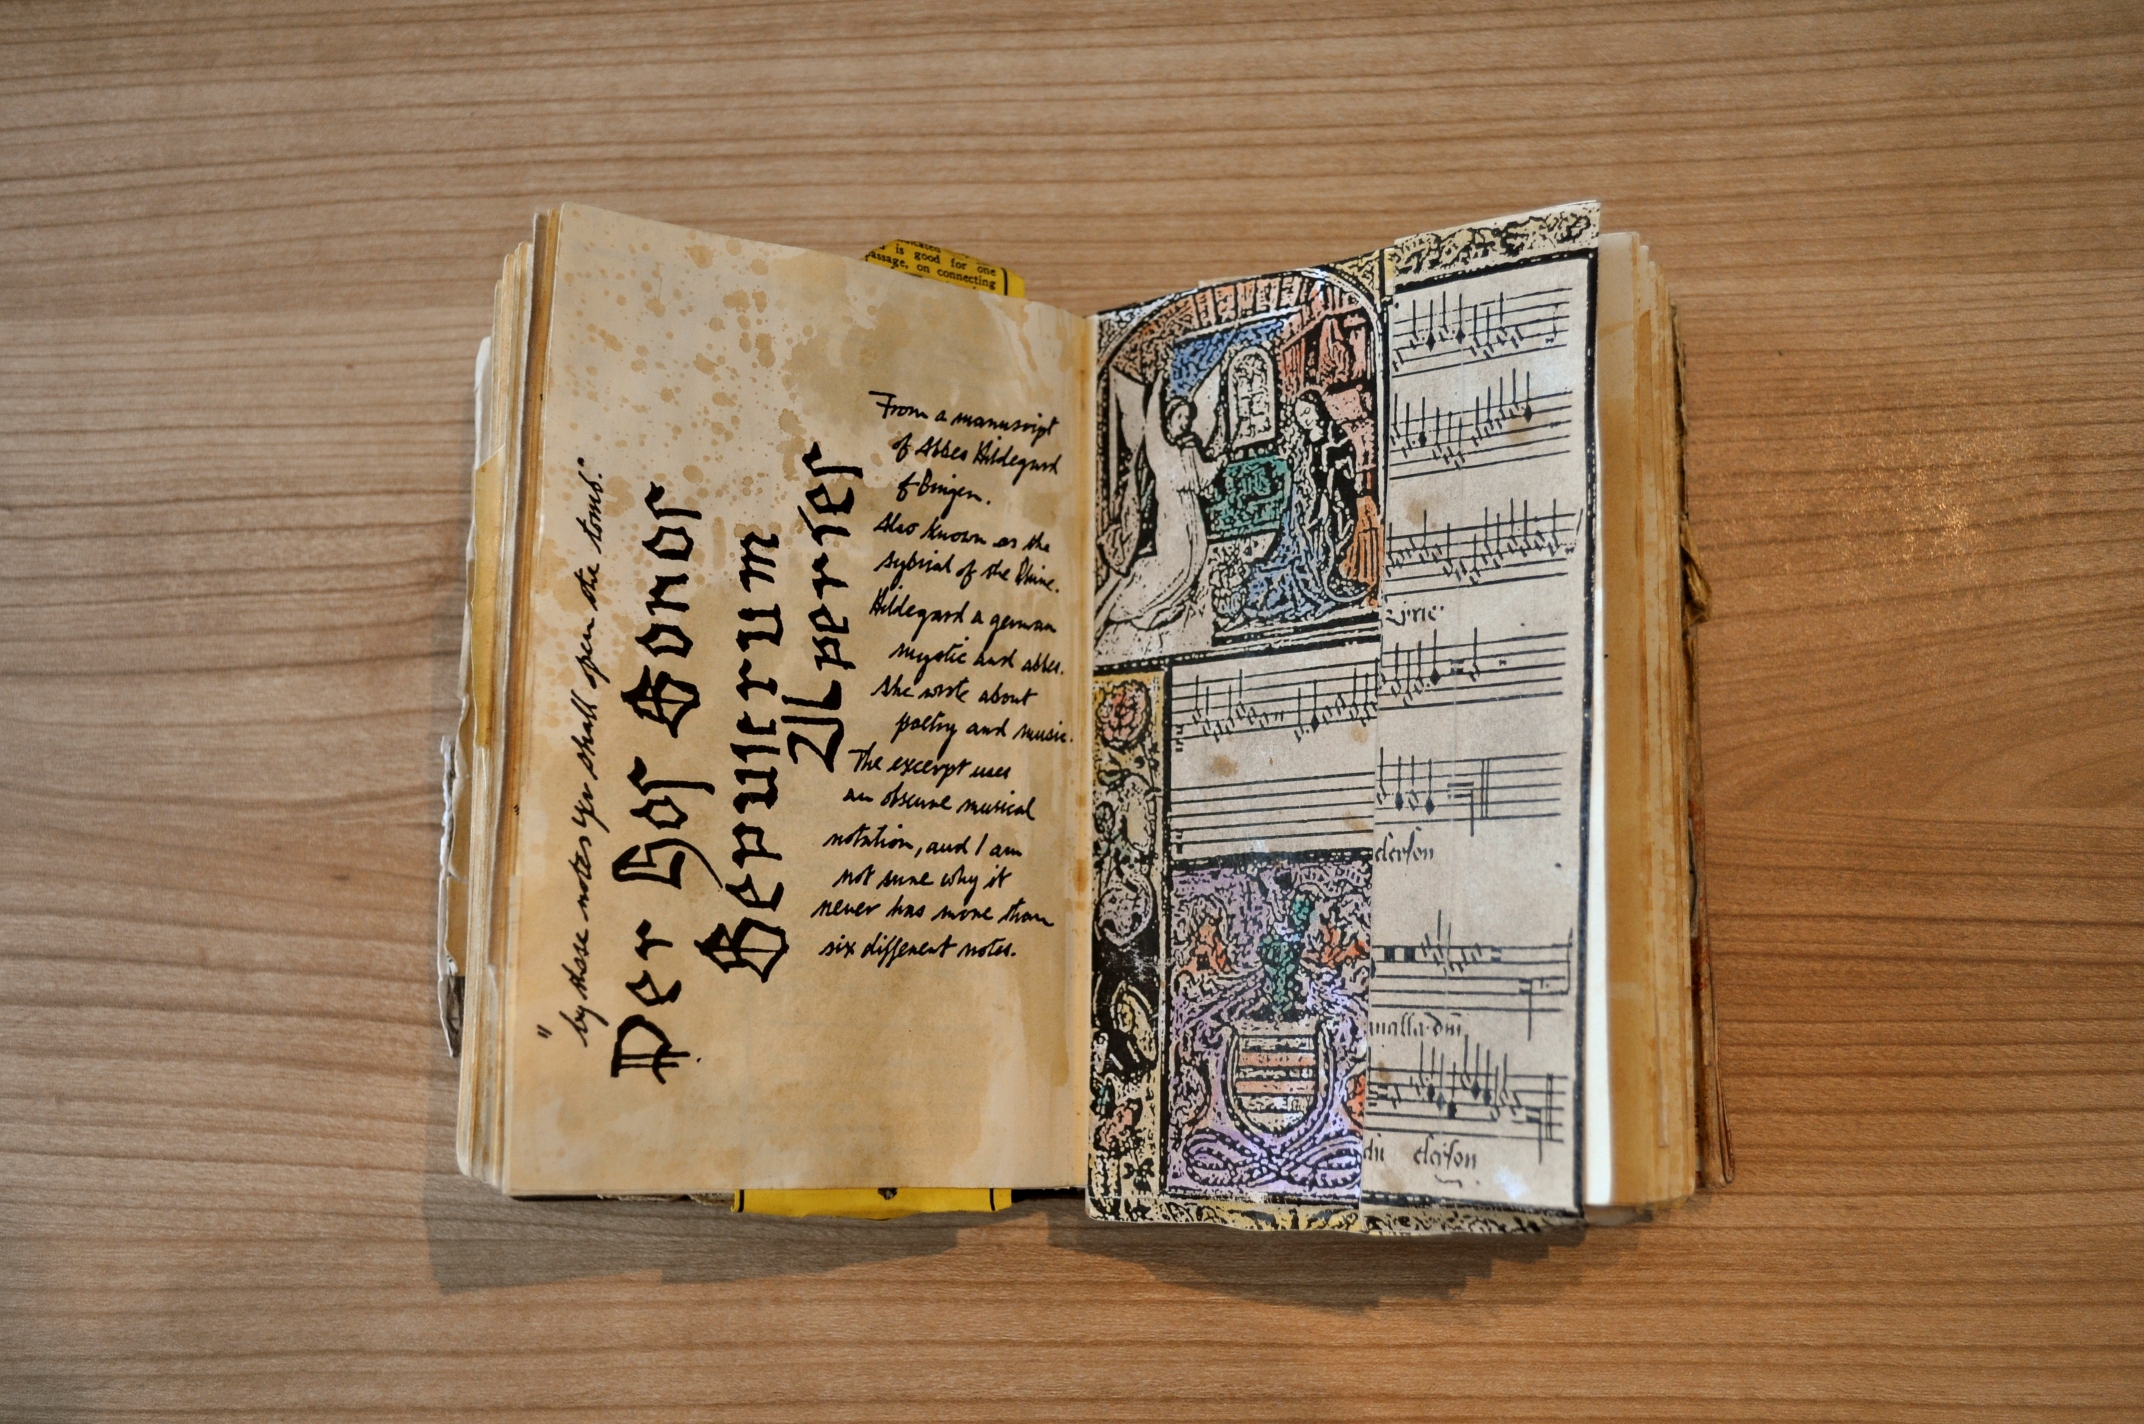 "by those notes you shall open the tomb."
Per Hos Sonos
Sepulcrum
Aperies
From a manuscript
of Abbes Hildegard
of Bingen.
Also known as the
sybrial of the Rhine.
Hildegard a german
mystic and abbes.
She wrote about
poetry and music.
The excerpt uses
an obscure musical
notation, and I am
not sure why it
never has more than
six different notes.
is good for one
assage, on connecting
eleyson